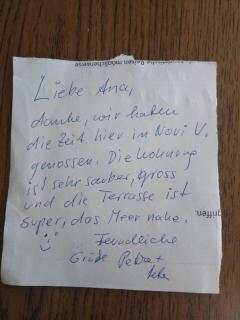 Reisen möglicherweise
Liebe Ana,
danke, wir haben
die Zeit hier in Novi V.
genossen. Die Wohnung
ist sehr sauber, gross
und die Terrasse ist
super, das Meer nahe.
griffen.
Freundliche
Grüße Petra +